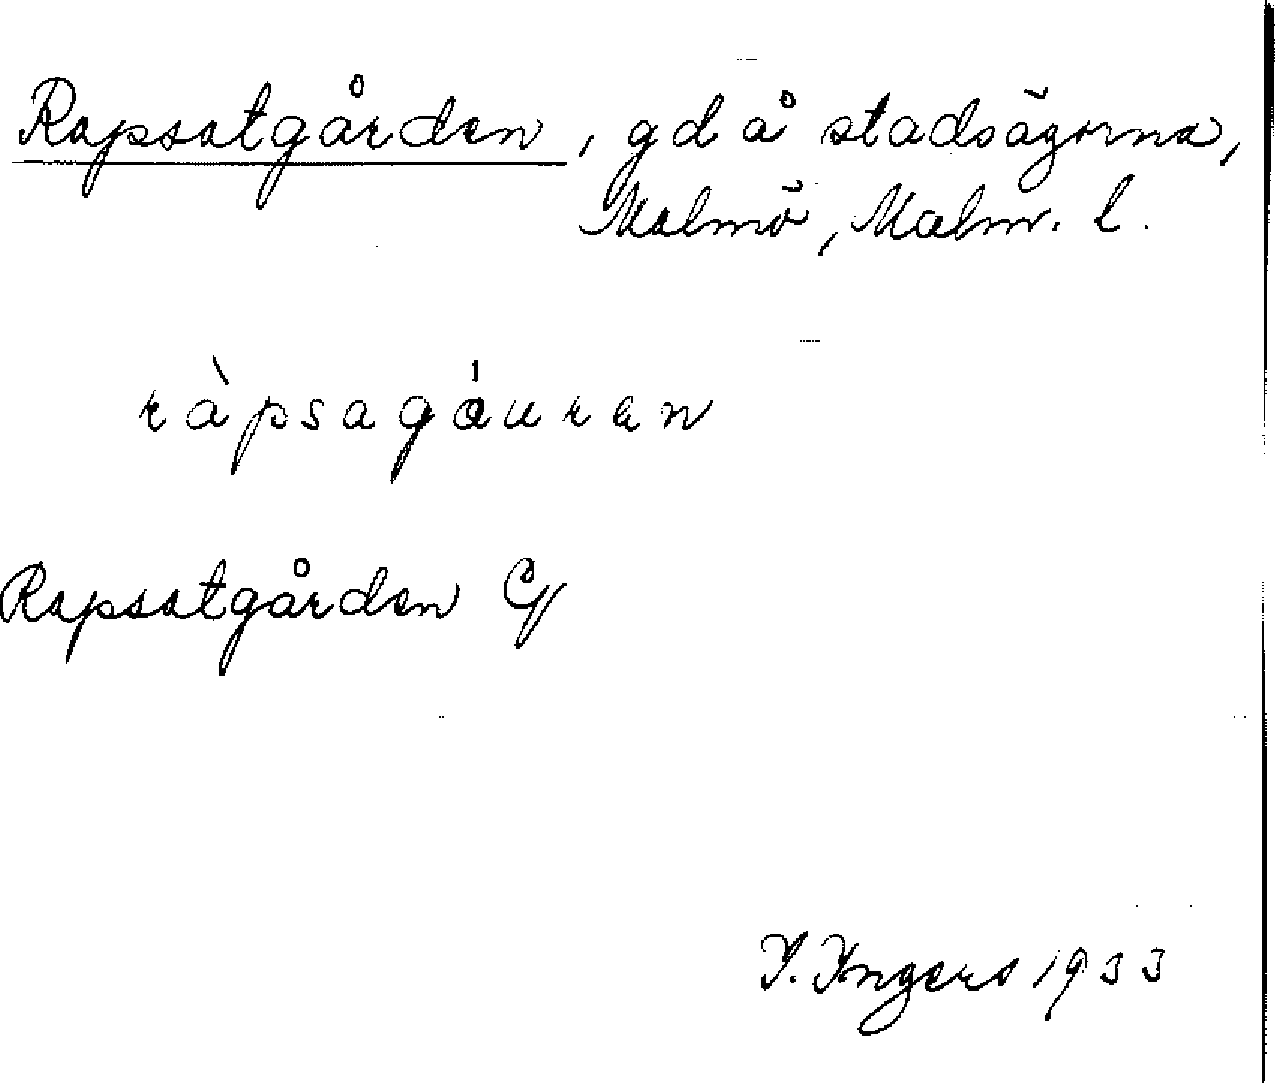 Rapsatgården, gd å stadsägorna,
Malmö, Malm. l.
ràpsagáuren
Rapsatgården
I. Ingers 1933